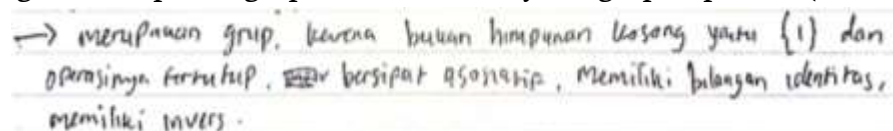 → merupakan grup, karena bukan himpunan kosong yaitu {1} dan
operasinya tertutup, bersipat asosiatip, memiliki bilangan identitas,
memiliki invers.